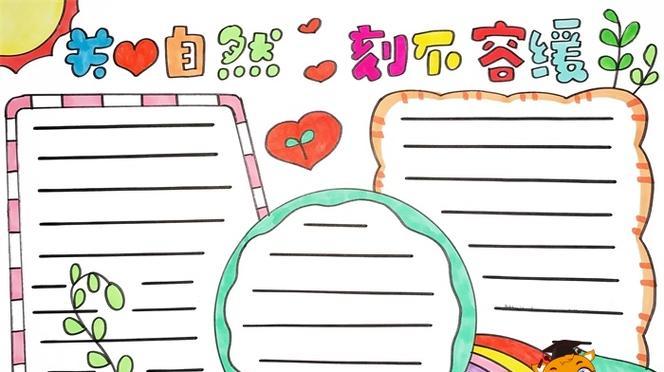 关自然 刻不容缓